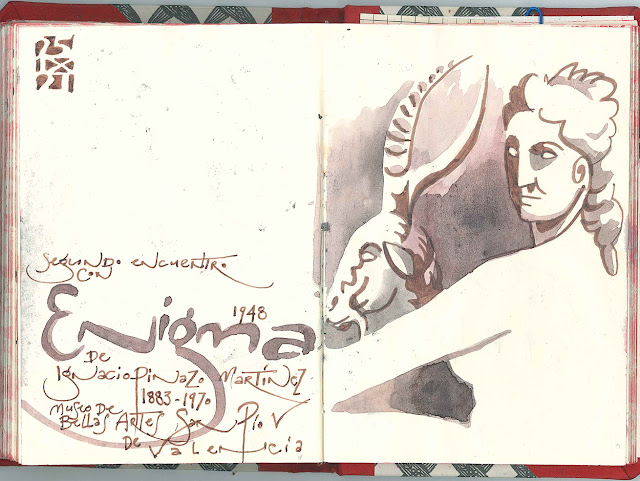 25
IX
21
Segundo encuentro
con
Enigma
1948
de
Ignacio Pinazo Martínez
1883-1970
Museo de
Bellas Artes San Pío V
de
Valencia